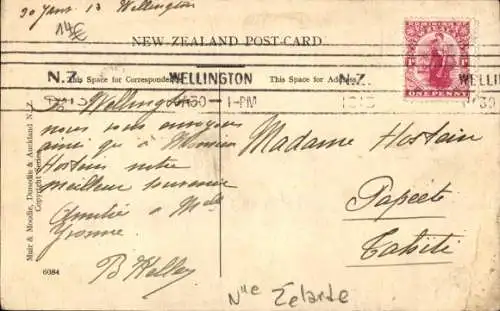 30 Janv 13 Wellington
14€
NEW-ZEALAND POST-CARD
N.Z. WELLINGTON N.Z. WELLINGTON
This Space for Correspondence
This Space for Address
30 1-PM
ONE PENNY
De Wellington
nous vous envoyons
ainsi qu'à Monsieur
Hostein notre
meilleur souvenir
Amitié à Mlle
Yvonne
Madame Hostein
Papeete
Tahiti
Muir & Moodie, Dunedin & Auckland N.Z.
Copyright Series
6084
Nlle Zélande